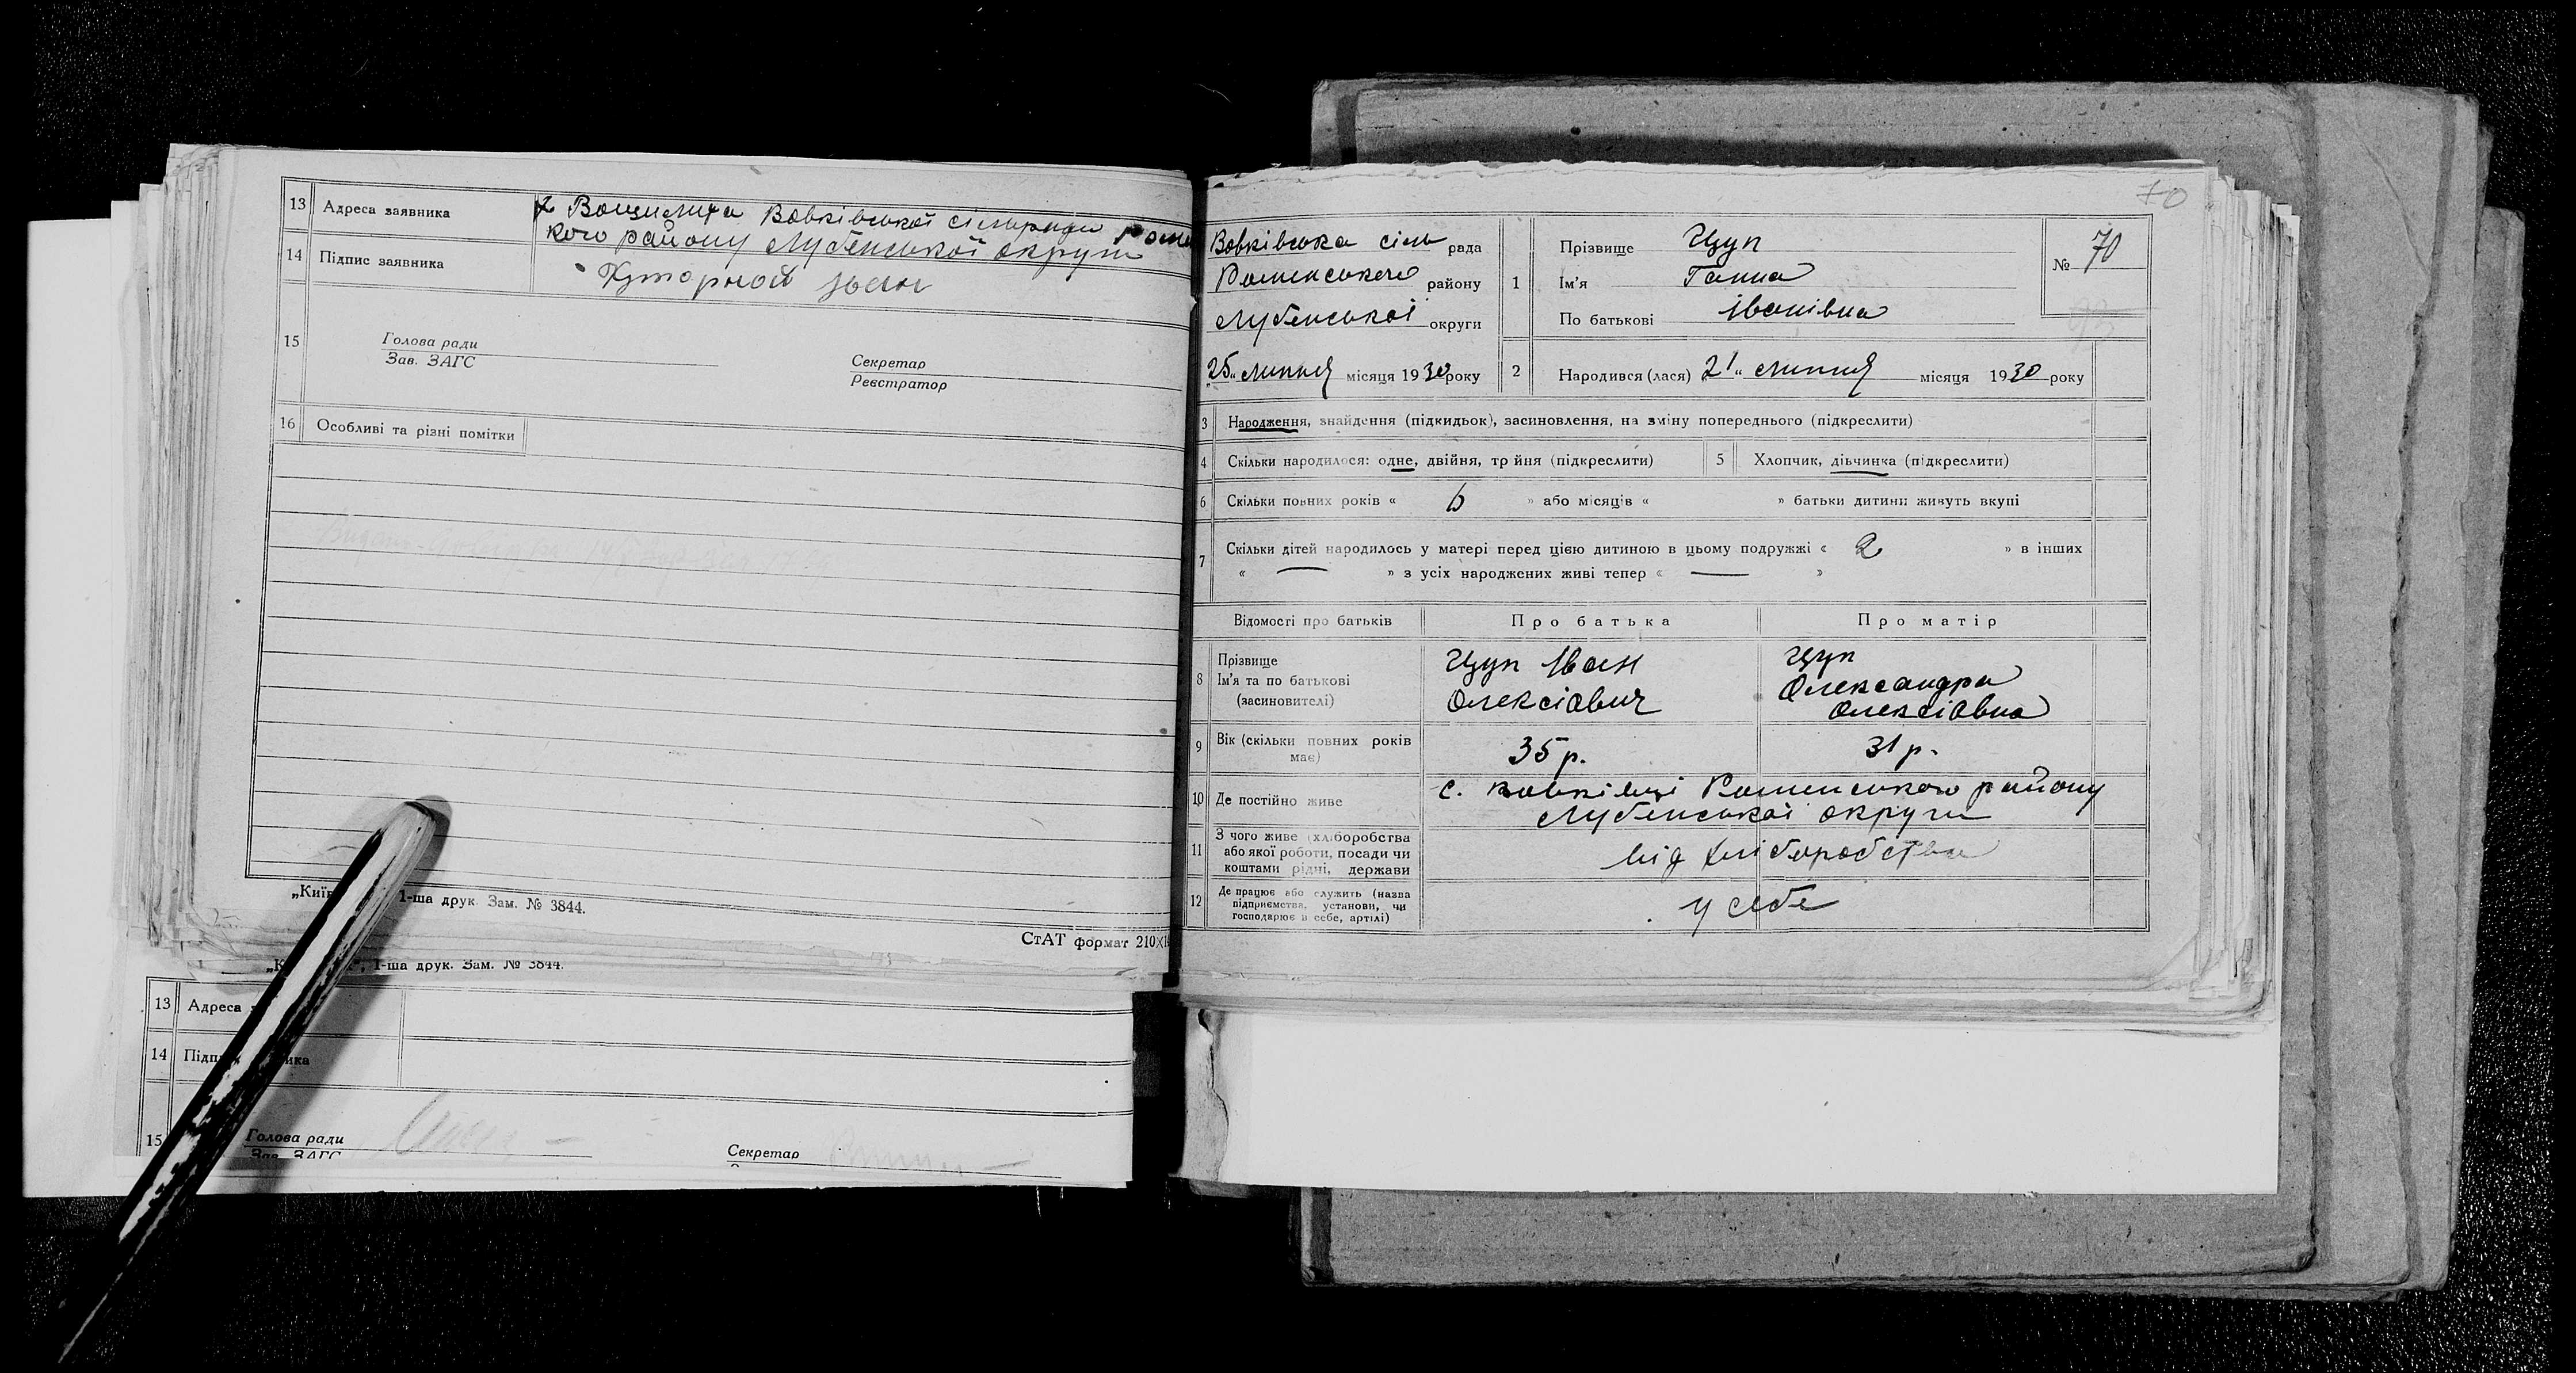 13 Адреса заявника
Вовківської сільради Роме
кого району Лубенської округи
14 Підпис заявника
15 Голова ради
Зав. ЗАГС
Секретар
Реєстратор
16 Особливі та різні помітки
1-ша друк. Зам. № 3844.
СтАТ формат 210×1
1-ша друк. Зам. № 3844.
13 Адреса
14
15 Голова ради
Зав. ЗАГС
Секретар
70
Вовківська сіль рада
Роменського району
Лубенської округи
„25“ липня місяця 1930 року
1 Прізвище Цуп
Ім'я Ганна
По батькові Іванівна
№ 70
2 Народився (лася) „21“ липня місяця 1930 року
3 Народження, знайдення (підкидьок), засиновлення, на зміну попереднього (підкреслити)
4 Скільки народилося: одне, двійня, трійня (підкреслити) 5 Хлопчик, дівчинка (підкреслити)
6 Скільки повних років « 6 » або місяців « » батьки дитини живуть вкупі
7 Скільки дітей народилось у матері перед цією дитиною в цьому подружжі « 2 » в інших
« — » з усіх народжених живі тепер « — »
Відомості про батьків Про батька Про матір
8 Прізвище
Ім'я та по батькові
(засиновителі)
Цуп Іван
Олексіович
Цуп
Олександра
Олексіовна
9 Вік (скільки повних років
має)
35 р. 31 р.
10 Де постійно живе
с. Вовківці Роменського району
Лубенської округи
11 З чого живе (хліборобства
або якої роботи, посади чи
коштами рідні, держави
від хліборобства
12 Де працює або служить (назва
підприємства, установи, чи
господарює в себе, артілі)
у себе